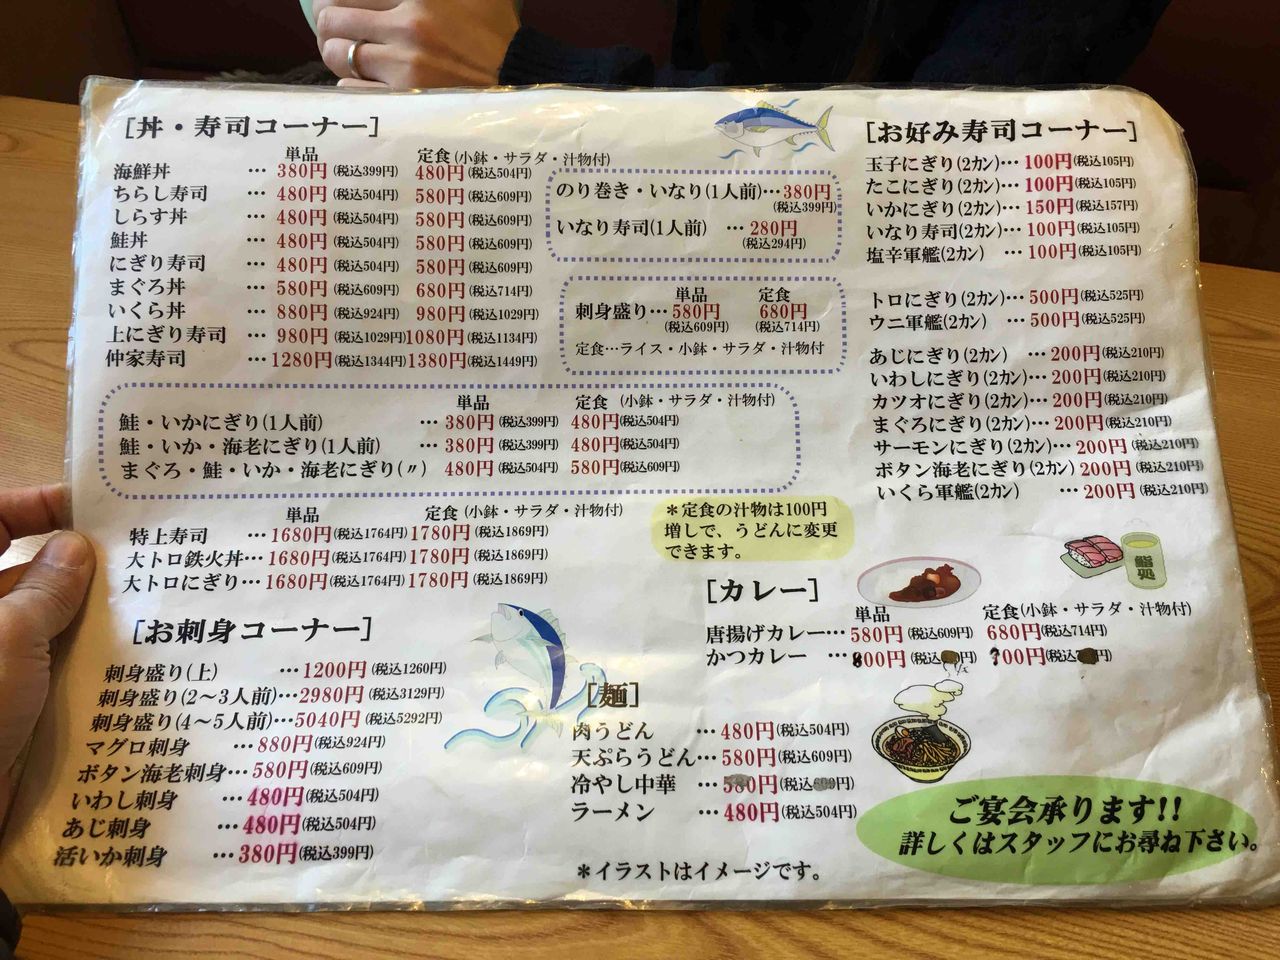 [丼・寿司コーナー]
単品 定食(小鉢・サラダ・汁物付)
海鮮丼 … 380円(税込399円) 480円(税込504円)
ちらし寿司 … 480円(税込504円) 580円(税込609円)
しらす丼 … 480円(税込504円) 580円(税込609円)
鮭丼 … 480円(税込504円) 580円(税込609円)
にぎり寿司 … 480円(税込504円) 580円(税込609円)
まぐろ丼 … 580円(税込609円) 680円(税込714円)
いくら丼 … 880円(税込924円) 980円(税込1029円)
上にぎり寿司 … 980円(税込1029円) 1080円(税込1134円)
仲家寿司 … 1280円(税込1344円) 1380円(税込1449円)
のり巻き・いなり(1人前)… 380円
(税込399円)
いなり寿司(1人前) … 280円
(税込294円)
単品 定食
刺身盛り… 580円 680円
(税込609円) (税込714円)
定食…ライス・小鉢・サラダ・汁物付
単品 定食 (小鉢・サラダ・汁物付)
鮭・いかにぎり(1人前) … 380円(税込399円) 480円(税込504円)
鮭・いか・海老にぎり(1人前) … 380円(税込399円) 480円(税込504円)
まぐろ・鮭・いか・海老にぎり(〃) 480円(税込504円) 580円(税込609円)
単品 定食(小鉢・サラダ・汁物付)
特上寿司 … 1680円(税込1764円) 1780円(税込1869円)
大トロ鉄火丼… 1680円(税込1764円) 1780円(税込1869円)
大トロにぎり… 1680円(税込1764円) 1780円(税込1869円)
*定食の汁物は100円
増しで、うどんに変更
できます。
[お刺身コーナー]
刺身盛り(上) … 1200円(税込1260円)
刺身盛り(2〜3人前)… 2980円(税込3129円)
刺身盛り(4〜5人前)… 5040円(税込5292円)
マグロ刺身 … 880円(税込924円)
ボタン海老刺身… 580円(税込609円)
いわし刺身 … 480円(税込504円)
あじ刺身 … 480円(税込504円)
活いか刺身 … 380円(税込399円)
[お好み寿司コーナー]
玉子にぎり(2カン)… 100円(税込105円)
たこにぎり(2カン)… 100円(税込105円)
いかにぎり(2カン)… 150円(税込157円)
いなり寿司(2カン)… 100円(税込105円)
塩辛軍艦(2カン) … 100円(税込105円)
トロにぎり(2カン)… 500円(税込525円)
ウニ軍艦(2カン) … 500円(税込525円)
あじにぎり(2カン)… 200円(税込210円)
いわしにぎり(2カン)… 200円(税込210円)
カツオにぎり(2カン)… 200円(税込210円)
まぐろにぎり(2カン)… 200円(税込210円)
サーモンにぎり(2カン)… 200円(税込210円)
ボタン海老にぎり(2カン) 200円(税込210円)
いくら軍艦(2カン) … 200円(税込210円)
鮨処
[カレー]
単品 定食(小鉢・サラダ・汁物付)
唐揚げカレー… 580円(税込609円) 680円(税込714円)
かつカレー …
[麺]
肉うどん … 480円(税込504円)
天ぷらうどん… 580円(税込609円)
冷やし中華 … 580円
ラーメン … 480円(税込504円)
*イラストはイメージです。
ご宴会承ります!!
詳しくはスタッフにお尋ね下さい。